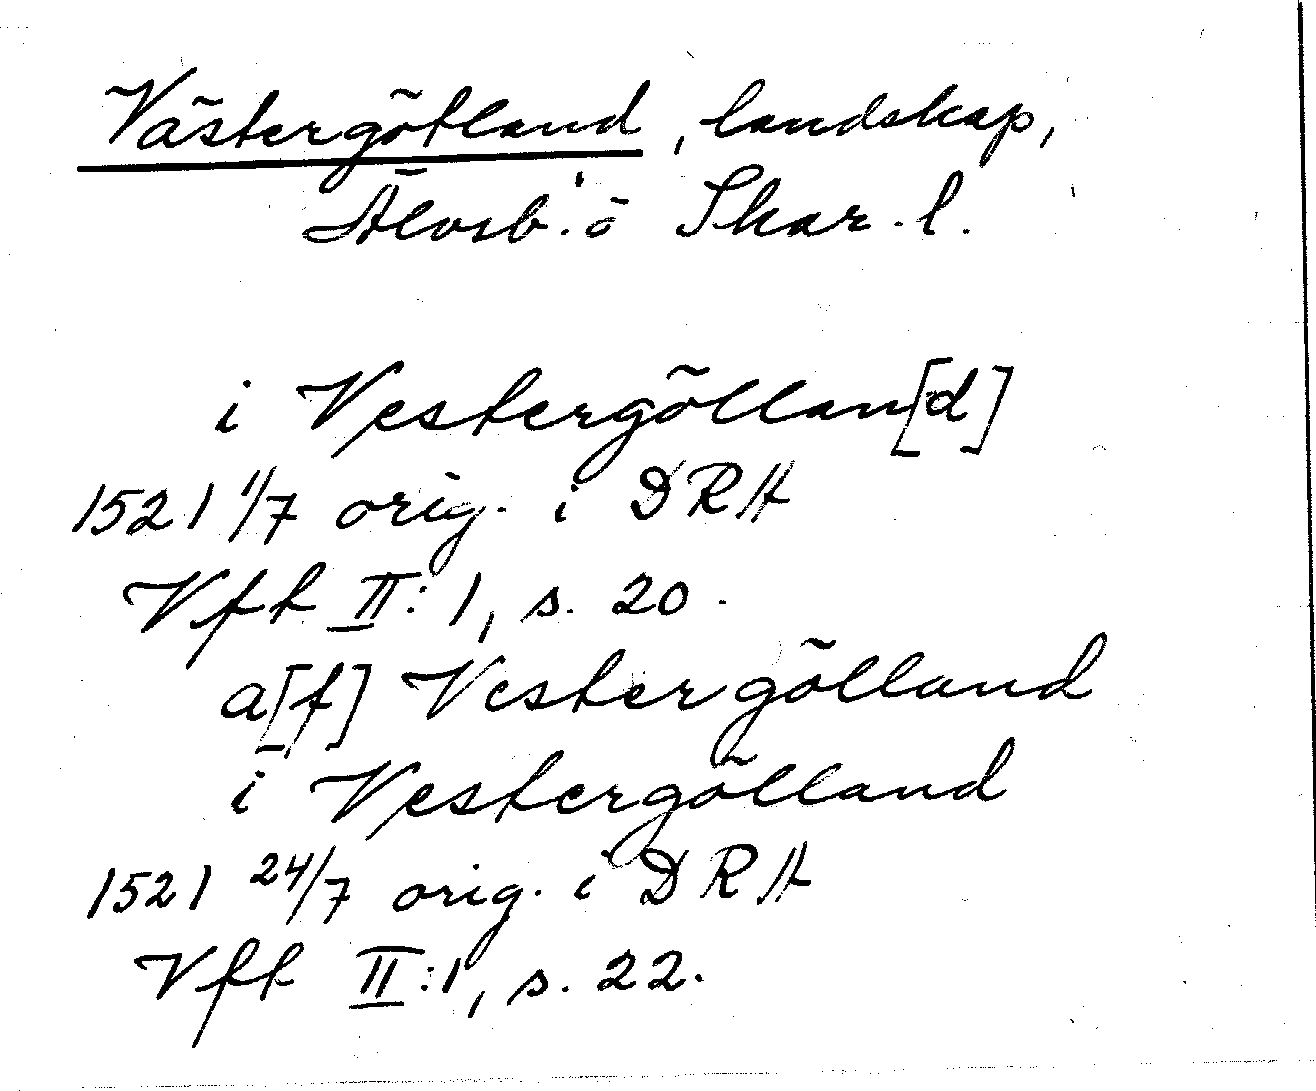 Västergötland, landskap,
Älvsb. o Skar. l.
i Vestergöllan[d]
1521 1/7 orig. i DRA
Vfk II:1, s. 20.
a[f] Vestergölland
i Vestergölland
1521 24/7 orig. i DRA
Vfk II:1, s. 22.